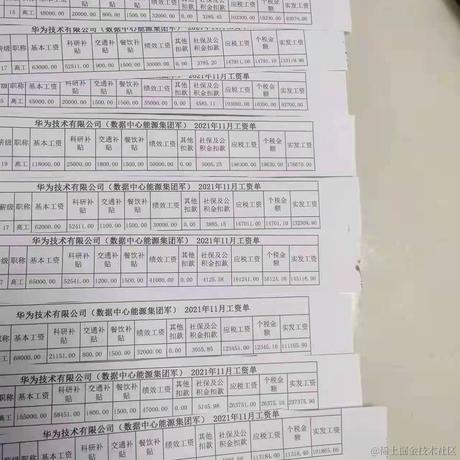 华为技术有限公司（数据中心能源集团军） 2021年11月工资单
薪级 职称 基本工资 科研补贴 交通补贴 餐饮补贴 绩效工资 其他扣款 社保及公积金扣款 应税工资 个税金额 实发工资
高工 63000.00 52811.00 900.00 1500.00 30000.00 0.00 3785.20
2021年11月工资单
职称 基本工资 科研补贴 交通补贴 餐饮补贴 绩效工资 其他扣款 社保及公积金扣款 应税工资 个税金额 实发工资
高工 45000.00 20000.00 1500.00 1500.00 0.00 4585.11
华为技术有限公司（数据中心能源集团军） 2021年11月工资单
薪级 职称 基本工资 科研补贴 交通补贴 餐饮补贴 绩效工资 其他扣款 社保及公积金扣款 应税工资 个税金额 实发工资
19 高工 118000.00 25000.00 1800.00 1500.00 50000.00 0.00 5005.25
华为技术有限公司（数据中心能源集团军） 2021年11月工资单
薪级 职称 基本工资 科研补贴 交通补贴 餐饮补贴 绩效工资 其他扣款 社保及公积金扣款 应税工资 个税金额 实发工资
17 高工 62000.00 52411.00 1100.00 1500.00 30000.00 0.00 3885.15 147011.00 132304.90
华为技术有限公司（数据中心能源集团军） 2021年11月工资单
薪级 职称 基本工资 科研补贴 交通补贴 餐饮补贴 绩效工资 其他扣款 社保及公积金扣款 应税工资 个税金额 实发工资
17 高工 65000.00 52541.00 1200.00 1500.00 41000.00 0.00 4125.58 161241.00 145116.90
华为技术有限公司（数据中心能源集团军） 2021年11月工资单
薪级 职称 基本工资 科研补贴 交通补贴 餐饮补贴 绩效工资 其他扣款 社保及公积金扣款 应税工资 个税金额 实发工资
高工 68000.00 21151.00 800.00 1500.00 32000.00 0.00 3055.85 123451.00 111105.90
华为技术有限公司（数据中心能源集团军） 2021年11月工资单
职称 基本工资 科研补贴 交通补贴 餐饮补贴 绩效工资 其他扣款 社保及公积金扣款 应税工资 个税金额 实发工资
高工 155000.00 58451.00 1800.00 1500.00 47000.00 0.00 5145.98 263751.00 237375.90
华为技术有限公司（数据中心能源集团军） 2021年11月工资单
基本工资 科研补贴 交通补贴 餐饮补贴 绩效工资 其他扣款 社保及公积金扣款 应税工资 个税金额 实发工资
@稀土掘金技术社区